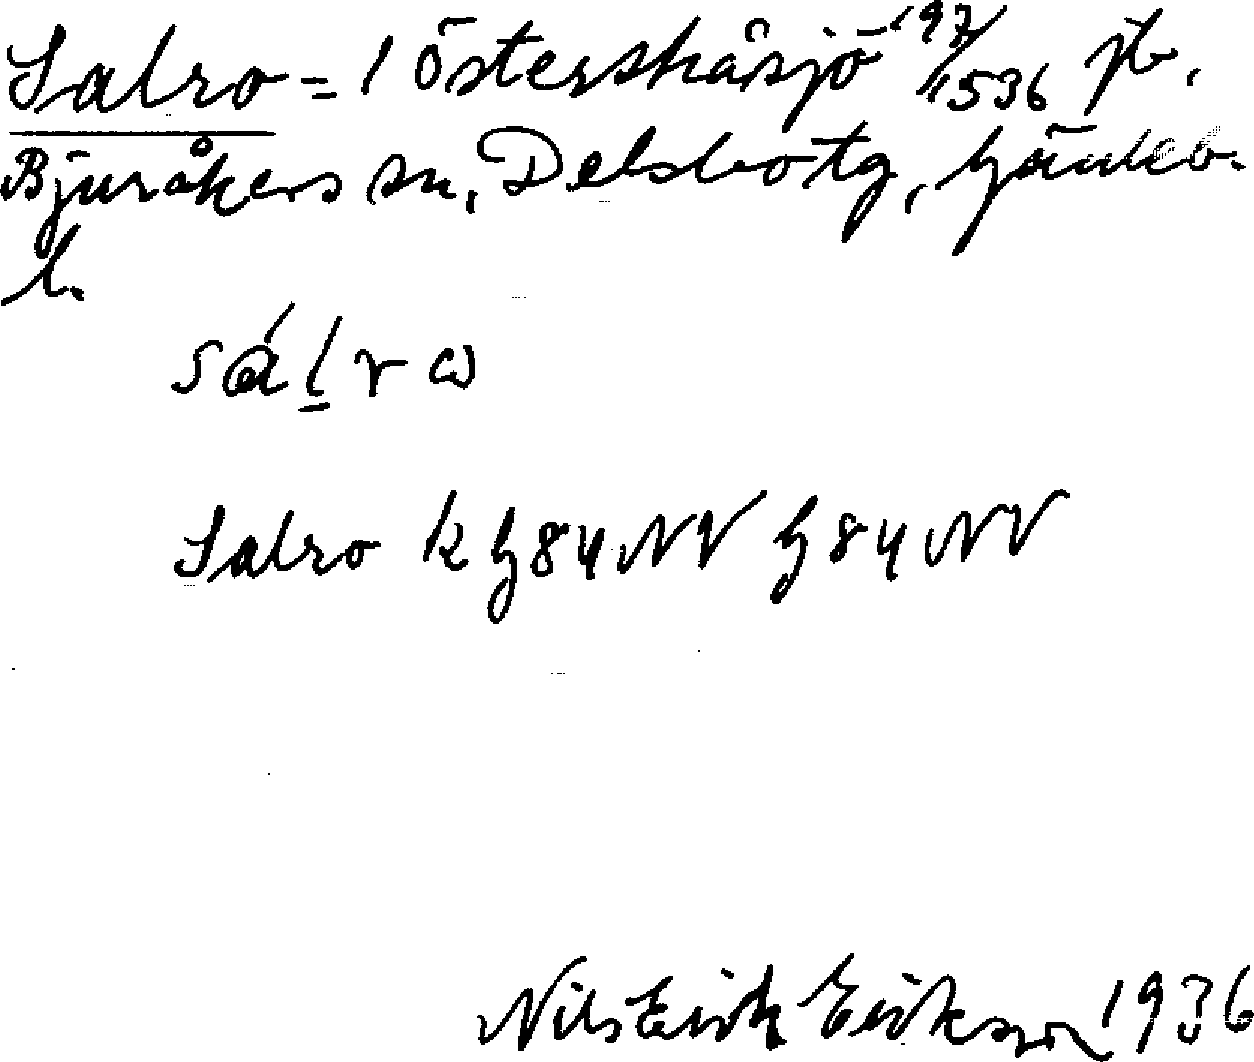 Salro = 1 Österskåsjö 197/1536 jb.
Bjuråkers sn, Delsbo tg, Gävleb.
l.
Salro k h 84 NV h 84 NV
Nils Erik Eriksson 1936